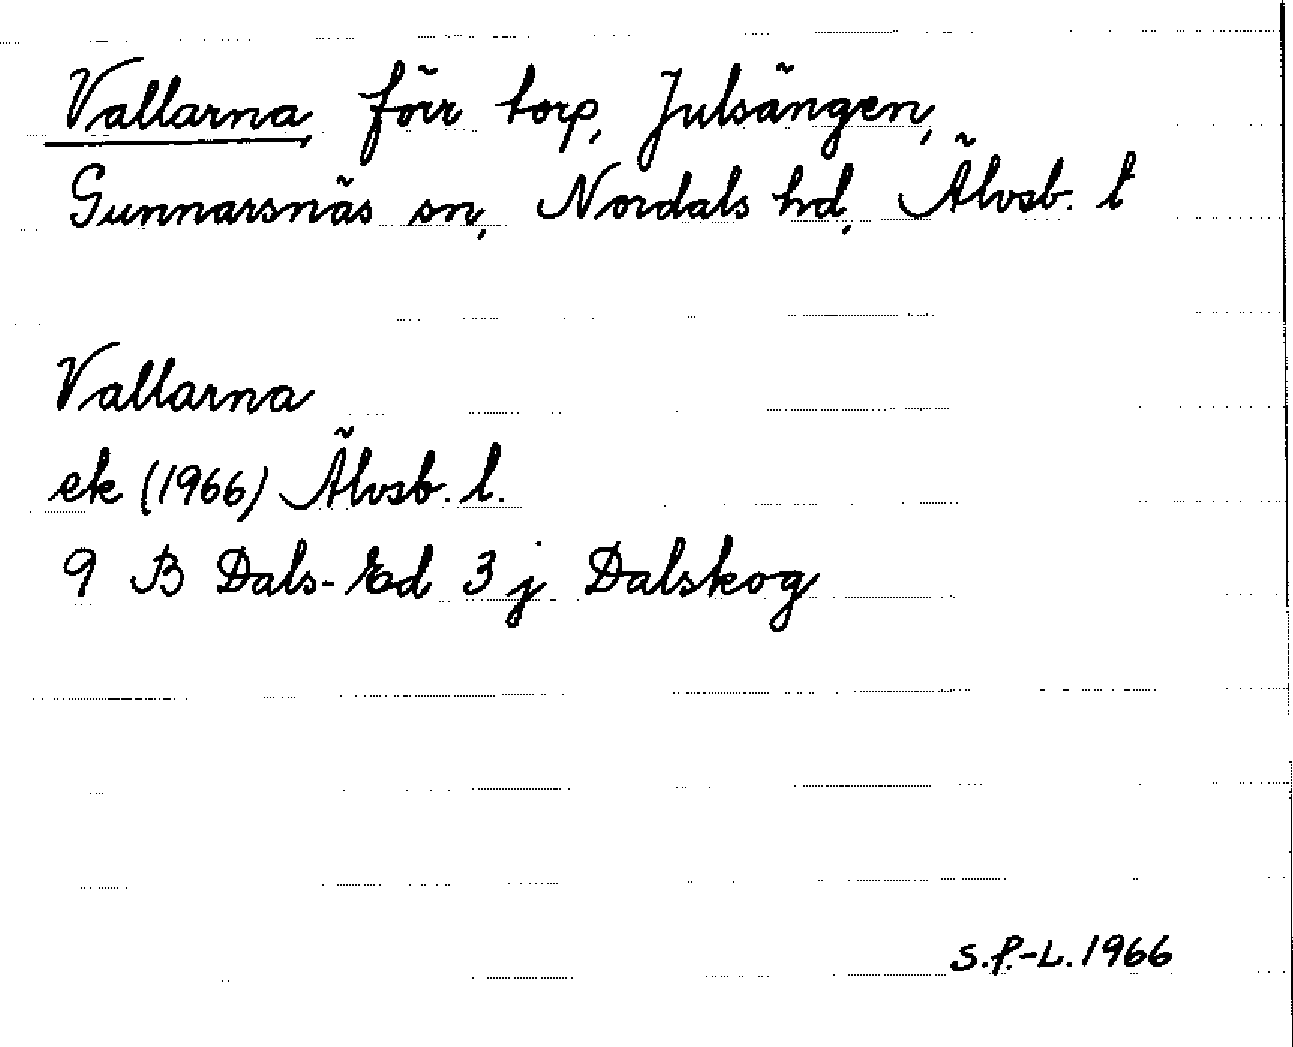 Vallarna, förr torp, Julsängen,
Gunnarsnäs sn, Nordals hd, Älvsb. l
Vallarna
ek (1966) Älvsb. l.
9 B Dals-Ed 3 j Dalskog
S.P.-L. 1966